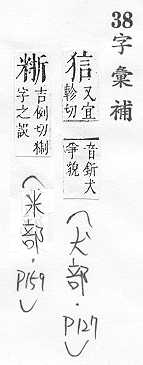 38
字彙補
狺 又宜軫切 音釿犬爭貌
(犬部.P127)
吉例切 字之誤
(米部.P159)